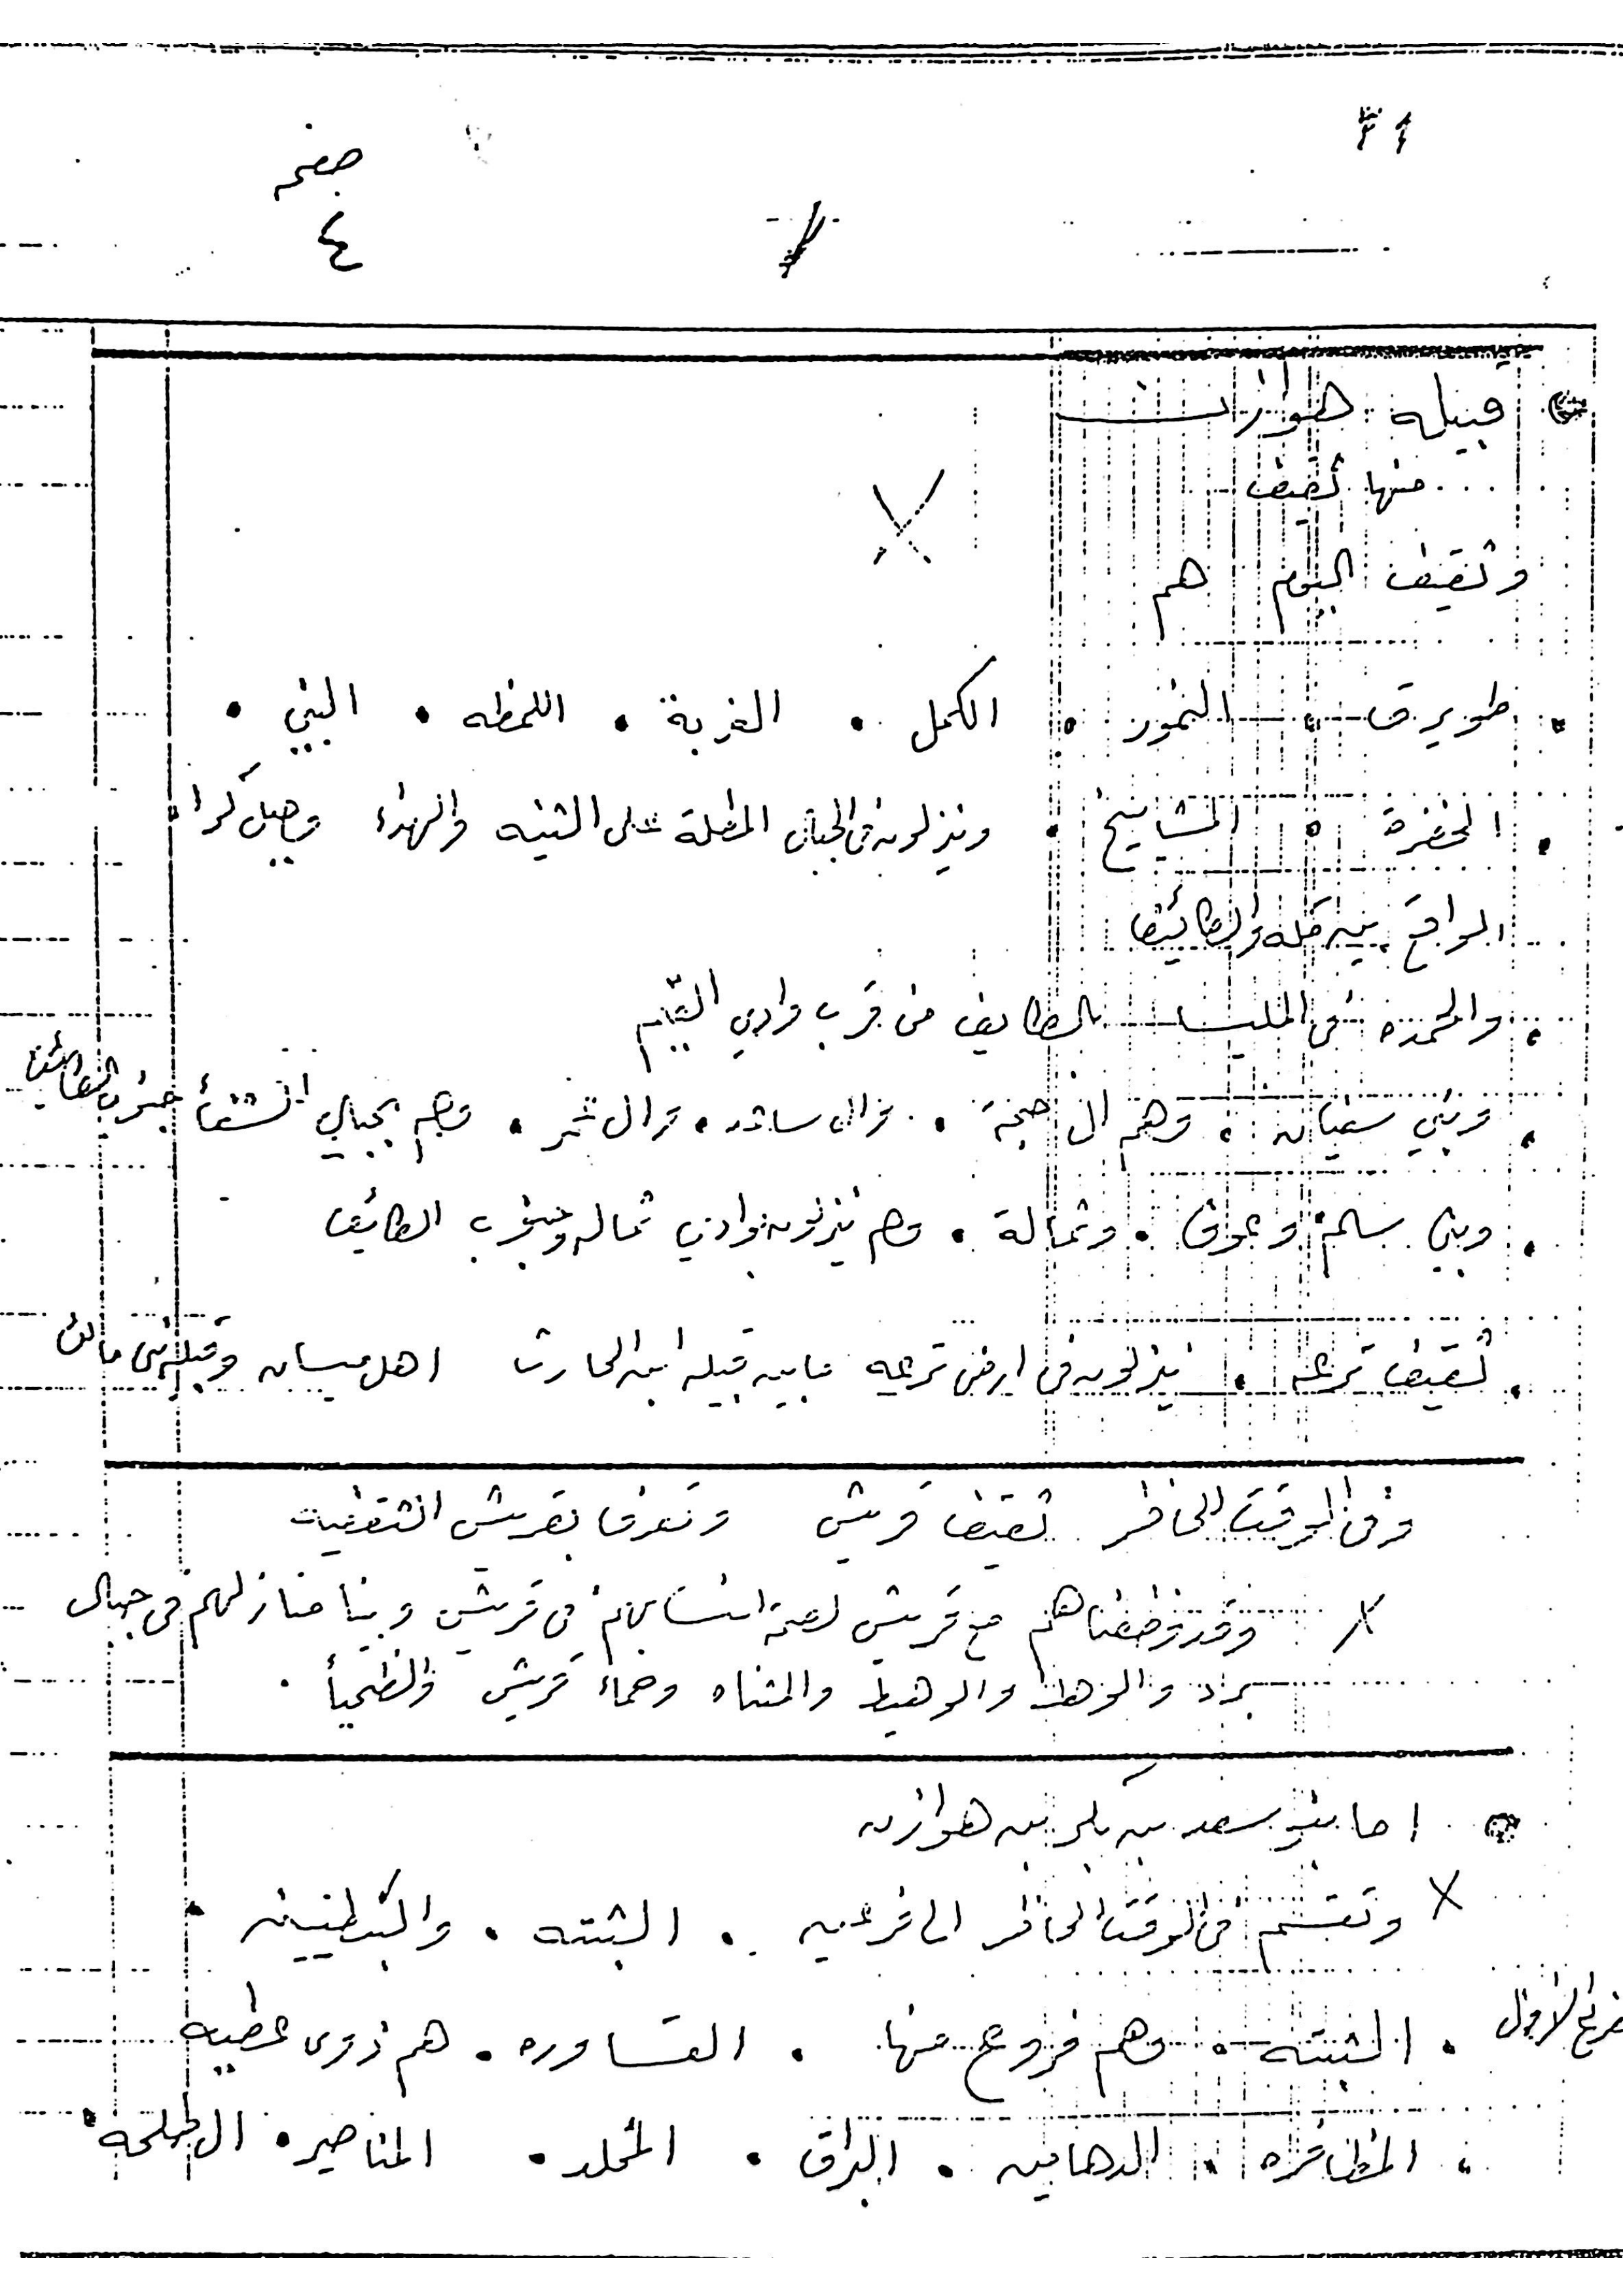 صفحه
٤
قبيله هوازن
منها ثقيف
وثقيف اليوم هم
طويرق . النمور . الكمل . الغربة . اللمظه . البني .
. الحضرة . المشاييخ . وينزلون في الجبال المطلة على الشفيه والهداء وجبل كرا
الواقع بين مكه والطائيف
. والحمده في المليسا بالطايف من قرب وادي القيم
. وبني سفيان . وهم ال حجة . وال ساعد . وال عمر . وهم بجبال الشفأ جنوب الطائف
. وبني سالم . وعوف . وثمالة . وهم ينزلون بوادي ثماله وجنوب الطائف
. ثقيف ترعه . ينزلون في ارض ترعيه مابين قبيله ابن الحارث اهل ميسان وقبيله بني مالك
وفي الوقت الحاضر ثقيف قريش وتعرف بقريش الثقفيت
X وقد وضعناهم مع قريش لصحة انسابهم في قريش وبينا منازلهم في جبال
براد والوهط والوهيط والمثناه وحماء قريش والضحيأ .
اما بنو سعد بن بكر بن هوازن
X وتقسم في الوقت الحاضر الى فرعين . الثبته . والبطنين .
الفرع الاول . الثبته . وهم فروع منها . القساوره . هم ذوى عطيه
. المظافره . الدهامين . البراق . المخلد . المناصير . ال طلحه .